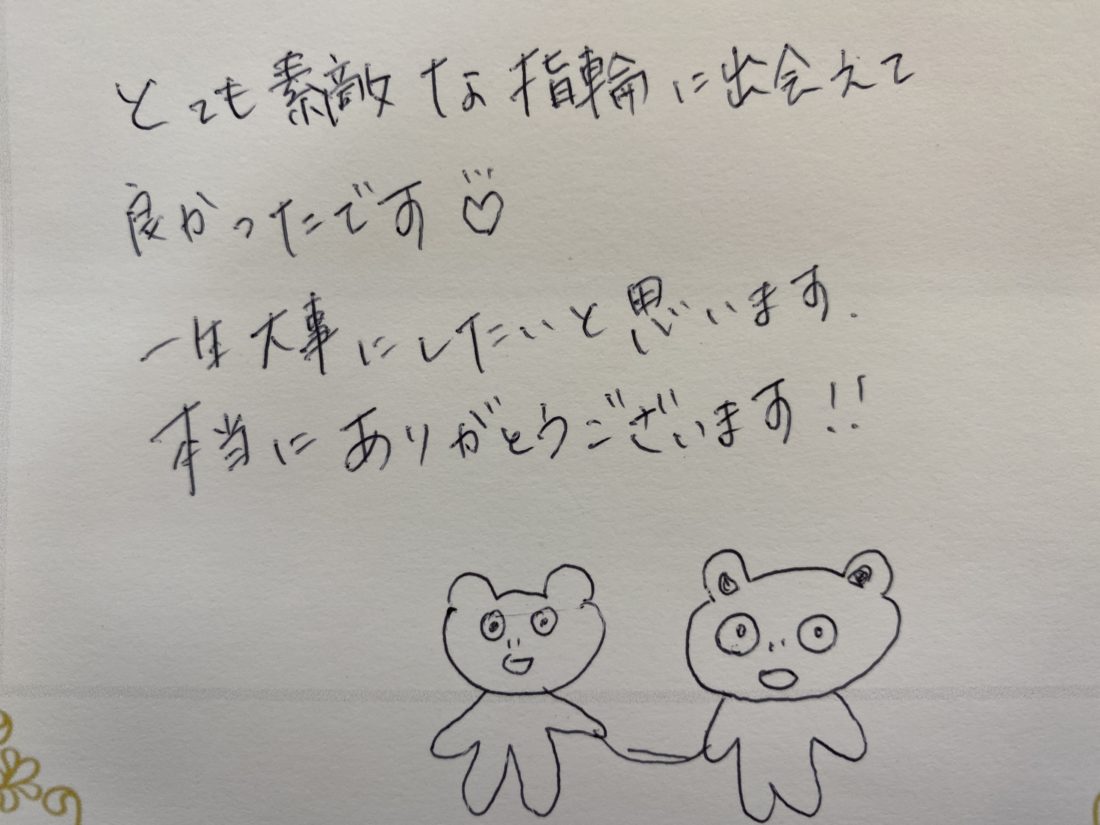 とても素敵な指輪に出会えて
良かったです♡
一生大事にしたいと思います.
本当にありがとうございます!!